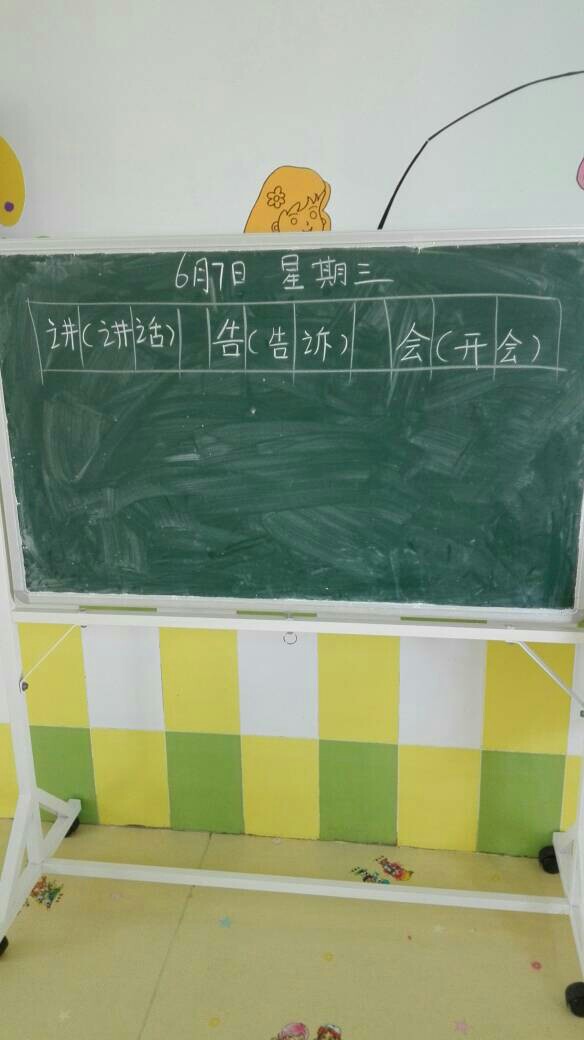 6月7日 星期三
讲(讲话) 告(告诉) 会(开会)